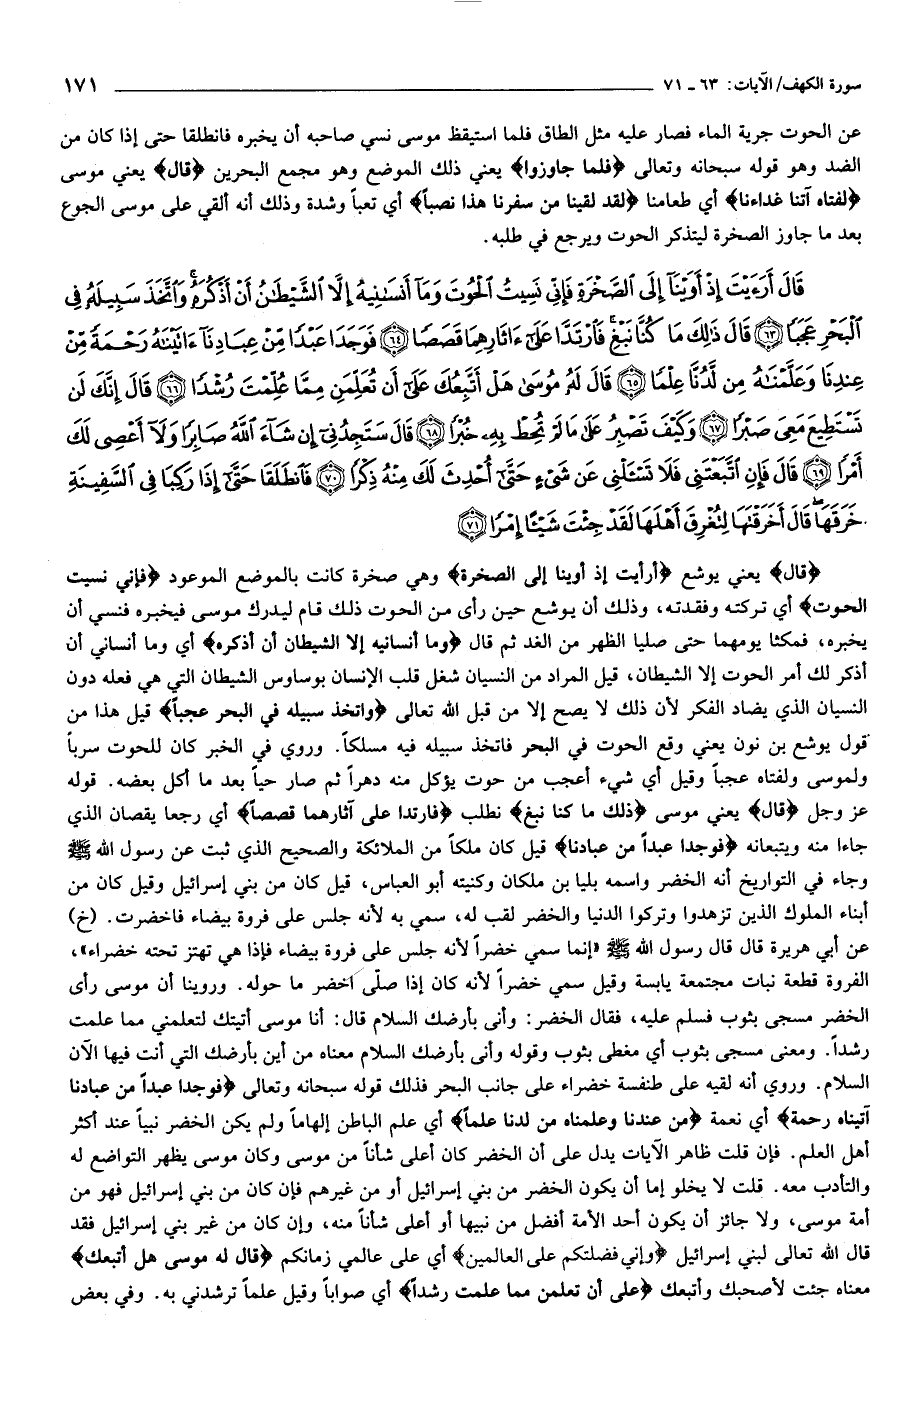 سورة الكهف/ الآيات: ٦٣ ـ ٧١ ١٧١
عن الحوت جرية الماء فصار عليه مثل الطاق فلما استيقظ موسى نسي صاحبه أن يخبره فانطلقا حتى إذا كان من
الضد وهو قوله سبحانه وتعالى ﴿فلما جاوزوا﴾ يعني ذلك الموضع وهو مجمع البحرين ﴿قال﴾ يعني موسى
﴿لفتاه آتنا غداءنا﴾ أي طعامنا ﴿لقد لقينا من سفرنا هذا نصباً﴾ أي تعباً وشدة وذلك أنه ألقي على موسى الجوع
بعد ما جاوز الصخرة ليتذكر الحوت ويرجع في طلبه.
قَالَ أَرَءَيْتَ إِذْ أَوَيْنَآ إِلَى ٱلصَّخْرَةِ فَإِنِّى نَسِيتُ ٱلْحُوتَ وَمَآ أَنسَىٰنِيهُ إِلَّا ٱلشَّيْطَٰنُ أَنْ أَذْكُرَهُۥ وَٱتَّخَذَ سَبِيلَهُۥ فِى
ٱلْبَحْرِ عَجَبًا ﴿٦٣﴾ قَالَ ذَٰلِكَ مَا كُنَّا نَبْغِ فَٱرْتَدَّا عَلَىٰٓ ءَاثَارِهِمَا قَصَصًا ﴿٦٤﴾ فَوَجَدَا عَبْدًا مِّنْ عِبَادِنَآ ءَاتَيْنَٰهُ رَحْمَةً مِّنْ
عِندِنَا وَعَلَّمْنَٰهُ مِن لَّدُنَّا عِلْمًا ﴿٦٥﴾ قَالَ لَهُۥ مُوسَىٰ هَلْ أَتَّبِعُكَ عَلَىٰٓ أَن تُعَلِّمَنِ مِمَّا عُلِّمْتَ رُشْدًا ﴿٦٦﴾ قَالَ إِنَّكَ لَن
تَسْتَطِيعَ مَعِىَ صَبْرًا ﴿٦٧﴾ وَكَيْفَ تَصْبِرُ عَلَىٰ مَا لَمْ تُحِطْ بِهِۦ خُبْرًا ﴿٦٨﴾ قَالَ سَتَجِدُنِىٓ إِن شَآءَ ٱللَّهُ صَابِرًا وَلَآ أَعْصِى لَكَ
أَمْرًا ﴿٦٩﴾ قَالَ فَإِنِ ٱتَّبَعْتَنِى فَلَا تَسْـَٔلْنِى عَن شَىْءٍ حَتَّىٰٓ أُحْدِثَ لَكَ مِنْهُ ذِكْرًا ﴿٧٠﴾ فَٱنطَلَقَا حَتَّىٰٓ إِذَا رَكِبَا فِى ٱلسَّفِينَةِ
خَرَقَهَا قَالَ أَخَرَقْتَهَا لِتُغْرِقَ أَهْلَهَا لَقَدْ جِئْتَ شَيْـًٔا إِمْرًا ﴿٧١﴾
﴿قال﴾ يعني يوشع ﴿أرأيت إذ أوينا إلى الصخرة﴾ وهي صخرة كانت بالموضع الموعود ﴿فإني نسيت
الحوت﴾ أي تركته وفقدته، وذلك أن يوشع حين رأى من الحوت ذلك قام ليدرك موسى فيخبره فنسي أن
يخبره، فمكثا يومهما حتى صليا الظهر من الغد ثم قال ﴿وما أنسانيه إلا الشيطان أن أذكره﴾ أي وما أنساني أن
أذكر لك أمر الحوت إلا الشيطان، قيل المراد من النسيان شغل قلب الإنسان بوساوس الشيطان التي هي فعله دون
النسيان الذي يضاد الفكر لأن ذلك لا يصح إلا من قبل الله تعالى ﴿واتخذ سبيله في البحر عجباً﴾ قيل هذا من
قول يوشع بن نون يعني وقع الحوت في البحر فاتخذ سبيله فيه مسلكاً. وروي في الخبر كان للحوت سرباً
ولموسى ولفتاه عجباً وقيل أي شيء أعجب من حوت يؤكل منه دهراً ثم صار حياً بعد ما أكل بعضه. قوله
عز وجل ﴿قال﴾ يعني موسى ﴿ذلك ما كنا نبغ﴾ نطلب ﴿فارتدا على آثارهما قصصاً﴾ أي رجعا يقصان الذي
جاءا منه ويتبعانه ﴿فوجدا عبداً من عبادنا﴾ قيل كان ملكاً من الملائكة والصحيح الذي ثبت عن رسول الله ﷺ
وجاء في التواريخ أنه الخضر واسمه بليا بن ملكان وكنيته أبو العباس، قيل كان من بني إسرائيل وقيل كان من
أبناء الملوك الذين تزهدوا وتركوا الدنيا والخضر لقب له، سمي به لأنه جلس على فروة بيضاء فاخضرت. (خ)
عن أبي هريرة قال قال رسول الله ﷺ «إنما سمي خضراً لأنه جلس على فروة بيضاء فإذا هي تهتز تحته خضراء»،
الفروة قطعة نبات مجتمعة يابسة وقيل سمي خضراً لأنه كان إذا صلّى اخضر ما حوله. وروينا أن موسى رأى
الخضر مسجى بثوب فسلم عليه، فقال الخضر: وأنى بأرضك السلام قال: أنا موسى أتيتك لتعلمني مما علمت
رشداً. ومعنى مسجى بثوب أي مغطى بثوب وقوله وأنى بأرضك السلام معناه من أين بأرضك التي أنت فيها الآن
السلام. وروي أنه لقيه على طنفسة خضراء على جانب البحر فذلك قوله سبحانه وتعالى ﴿فوجدا عبداً من عبادنا
آتيناه رحمة﴾ أي نعمة ﴿من عندنا وعلمناه من لدنا علماً﴾ أي علم الباطن إلهاماً ولم يكن الخضر نبياً عند أكثر
أهل العلم. فإن قلت ظاهر الآيات يدل على أن الخضر كان أعلى شأناً من موسى وكان موسى يظهر التواضع له
والتأدب معه. قلت لا يخلو إما أن يكون الخضر من بني إسرائيل أو من غيرهم فإن كان من بني إسرائيل فهو من
أمة موسى، ولا جائز أن يكون أحد الأمة أفضل من نبيها أو أعلى شأناً منه، وإن كان من غير بني إسرائيل فقد
قال الله تعالى لبني إسرائيل ﴿وإني فضلتكم على العالمين﴾ أي على عالمي زمانكم ﴿قال له موسى هل أتبعك﴾
معناه جئت لأصحبك وأتبعك ﴿على أن تعلمن مما علمت رشداً﴾ أي صواباً وقيل علماً ترشدني به. وفي بعض